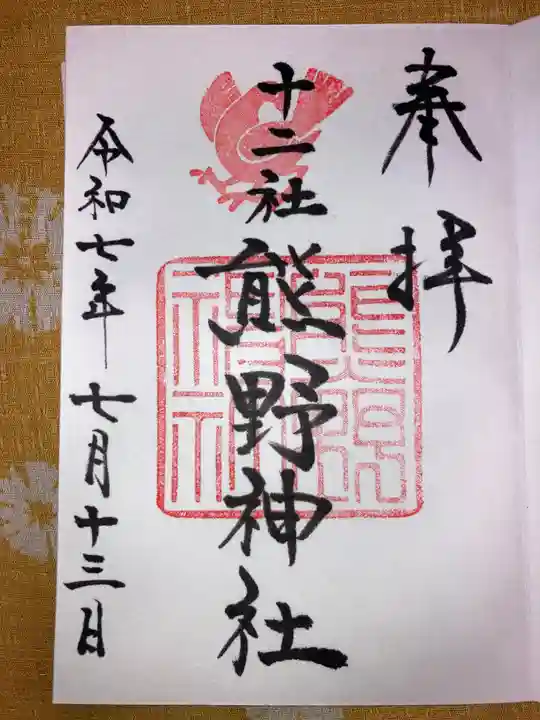 奉拝
十二社
熊野神社
令和七年七月十三日